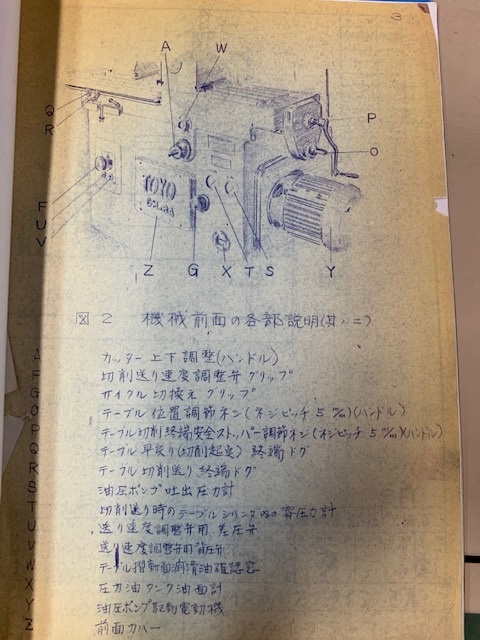 3
A W
Q
R
P
O
F
U
V
TOYO
Z G X T S Y
図 2 機械前面の各部説明(其ノ二)
A カッター上下調整(ハンドル)
F 切削送り速度調整弁グリップ
G サイクル切換えグリップ
O テーブル位置調節ネジ(ネジピッチ 5 ㎜)(ハンドル)
P テーブル切削終端安全ストッパー調節ネジ(ネジピッチ 5 ㎜)(ハンドル)
Q テーブル早戻り(切削起点)終端ドグ
R テーブル切削送り終端ドグ
S 油圧ポンプ吐出圧力計
T 切削送り時のテーブルシリンダ内の背圧力計
U 送り速度調整弁用差圧弁
V 送り速度調整弁用背圧弁
W テーブル摺動面滴滑油確認窓
X 圧力油タンク油面計
Y 油圧ポンプ駆動電動機
Z 前面カバー